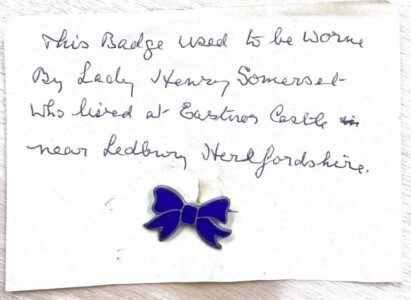 This Badge used to be worne
By Lady Henry Somerset
who lived at Eastnor Castle in
near Ledbury Herefordshire.